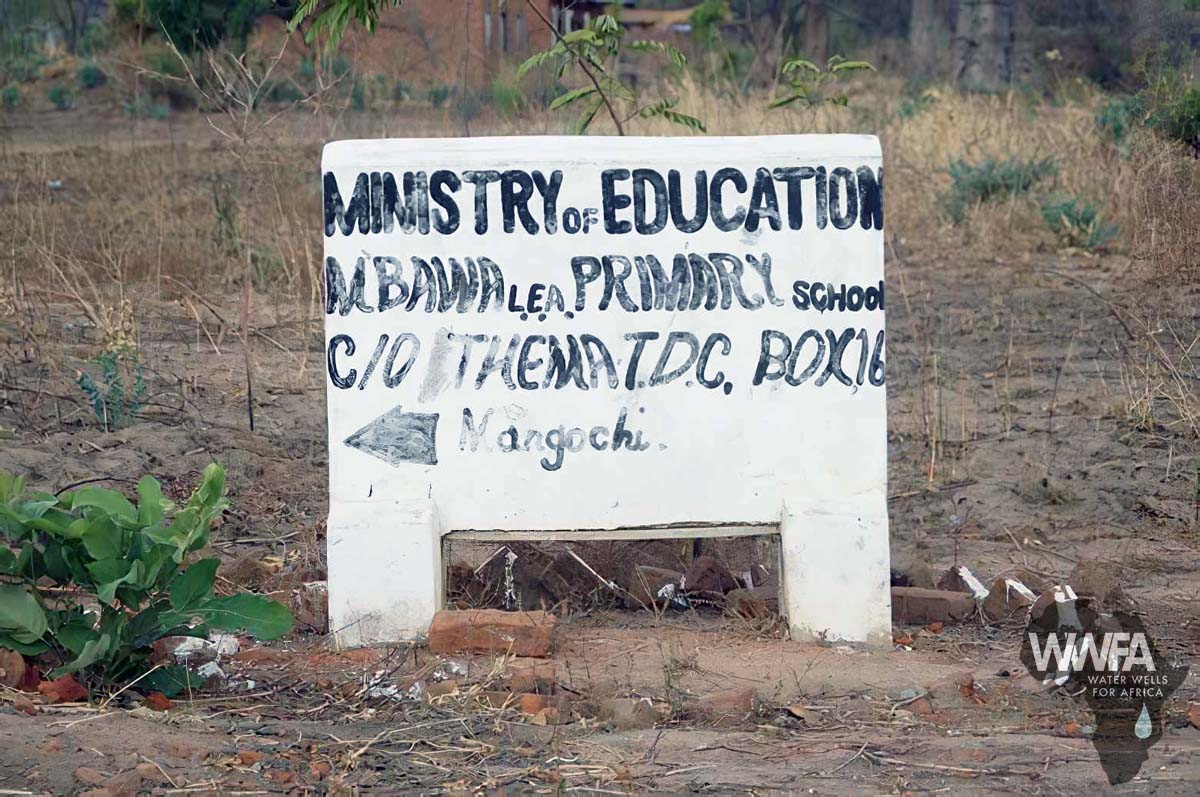 MINISTRY OF EDUCATION
MBAWA L.E.A. PRIMARY SCHOOL
C/O THEMA T.D.C. BOX,16
Mangochi.
WWFA
WATER WELLS
FOR AFRICA